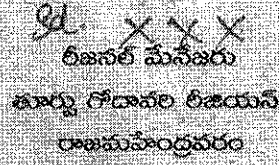 Sd. X X X
రీజనల్ మేనేజరు
తూర్పు గోదావరి రీజియన్
రాజమహేంద్రవరం